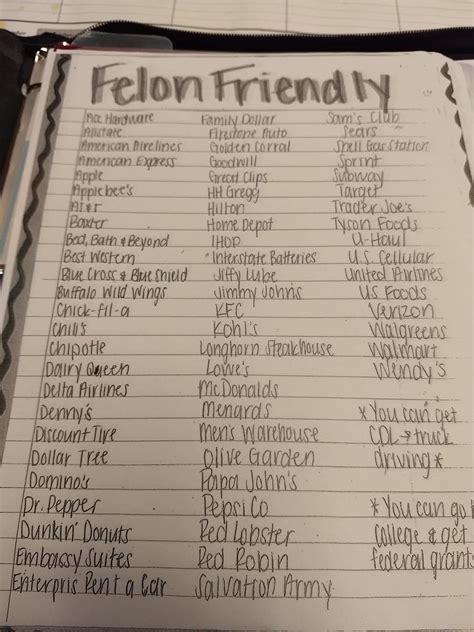 Felon Friendly
Ace Hardware
Allstate
American Airelines
American Express
Apple
Applebee's
AT&T
Baxter
Bed, Bath & Beyond
Best Western
Blue Cross & Blue Shield
Buffalo Wild Wings
Chick-fil-a
Chili's
Chipotle
Dairy Queen
Delta Airlines
Denny's
Discount Tire
Dollar Tree
Domino's
Dr. Pepper
Dunkin' Donuts
Embassy Suites
Enterpris Rent a Car
Family Dollar
Firestone Auto
Golden Corral
Goodwill
Great Clips
HH Gregg
Hilton
Home Depot
IHOP
Interstate Batteries
Jiffy Lube
Jimmy John's
KFC
Kohl's
Longhorn Steakhouse
Lowe's
McDonalds
Menards
Men's Warehouse
Olive Garden
Papa John's
PepsiCo
Red Lobster
Red Robin
Salvation Army
Sam's Club
Sears
Shell Gas Station
Sprint
Subway
Target
Trader Joe's
Tyson Foods
U-Haul
U.S. Cellular
United Airlines
US Foods
Verizon
Walgreens
Walmart
Wendy's
*You can get
CDL→truck
driving*
*You can go
College & get
federal grants